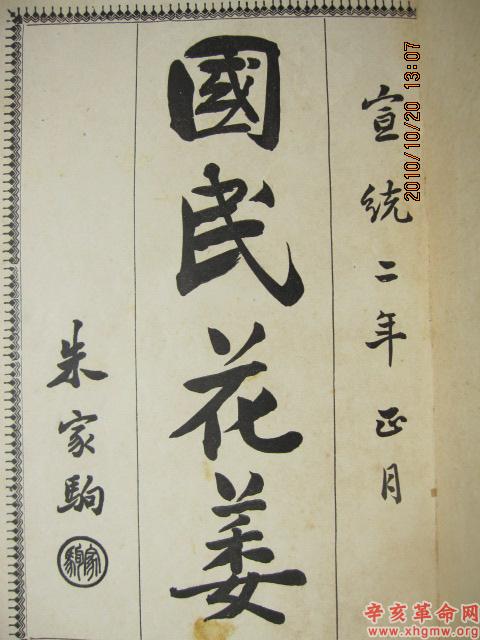 宣統二年正月
國民花萼
朱家駒
家駒
2010/10/20 13:07
辛亥革命网
www.xhgmw.org